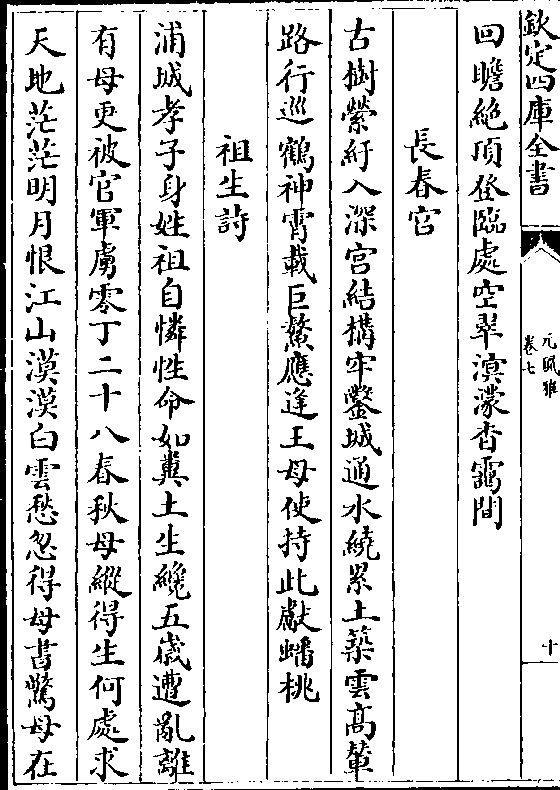 欽定四庫全書
元風雅
卷七
十
回瞻絶頂登臨處空翠溟濛杳靄間
長春宫
古樹縈紆入深宫結構牢鑿城通水繞累土築雲髙輦
路行巡鶴神霄載巨鰲應逢王母使持此獻蟠桃
祖生詩
浦城孝子身姓祖自憐性命如糞土生纔五歲遭亂離
有母更被官軍虜零丁二十八春秋母縱得生何處求
天地茫茫明月恨江山漠漠白雲愁忽得母書驚母在